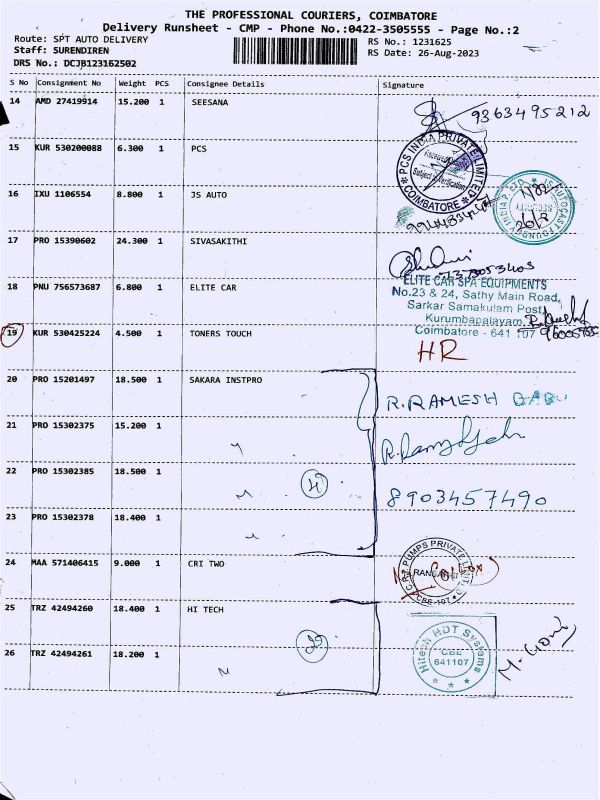 THE PROFESSIONAL COURIERS, COIMBATORE
Delivery Runsheet - CMP - Phone No.:0422-3505555 - Page No.:2
Route: SPT AUTO DELIVERY
RS No.: 1231625
Staff: SURENDIREN
RS Date: 26-Aug-2023
DRS No.: DCJB123162502
S No Consignment No Weight PCS Consignee Details Signature
14 AMD 27419914 15.200 1 SEESANA
9363495212
15 KUR 530200088 6.300 1 PCS
PCS INDIA PRIVATE LIMITED
COIMBATORE
16 IXU 1106554 8.800 1 JS AUTO
26/8
17 PRO 15390602 24.300 1 SIVASAKITHI
18 PNU 756573687 6.800 1 ELITE CAR
ELITE CAR SPA EQUIPMENTS
No.23 & 24, Sathy Main Road,
Sarkar Samakulam Post
Kurumbapalayam,
Coimbatore - 641 107
19 KUR 530425224 4.500 1 TONERS TOUCH
HR
20 PRO 15201497 18.500 1 SAKARA INSTPRO
R.RAMESH BABU
21 PRO 15302375 15.200 1
22 PRO 15302385 18.500 1
8903457490
23 PRO 15302378 18.400 1
24 MAA 571406415 9.000 1 CRI TWO
PUMPS PRIVATE
25 TRZ 42494260 18.400 1 HI TECH
Hitech HDT Systems
CBE
641107
26 TRZ 42494261 18.200 1